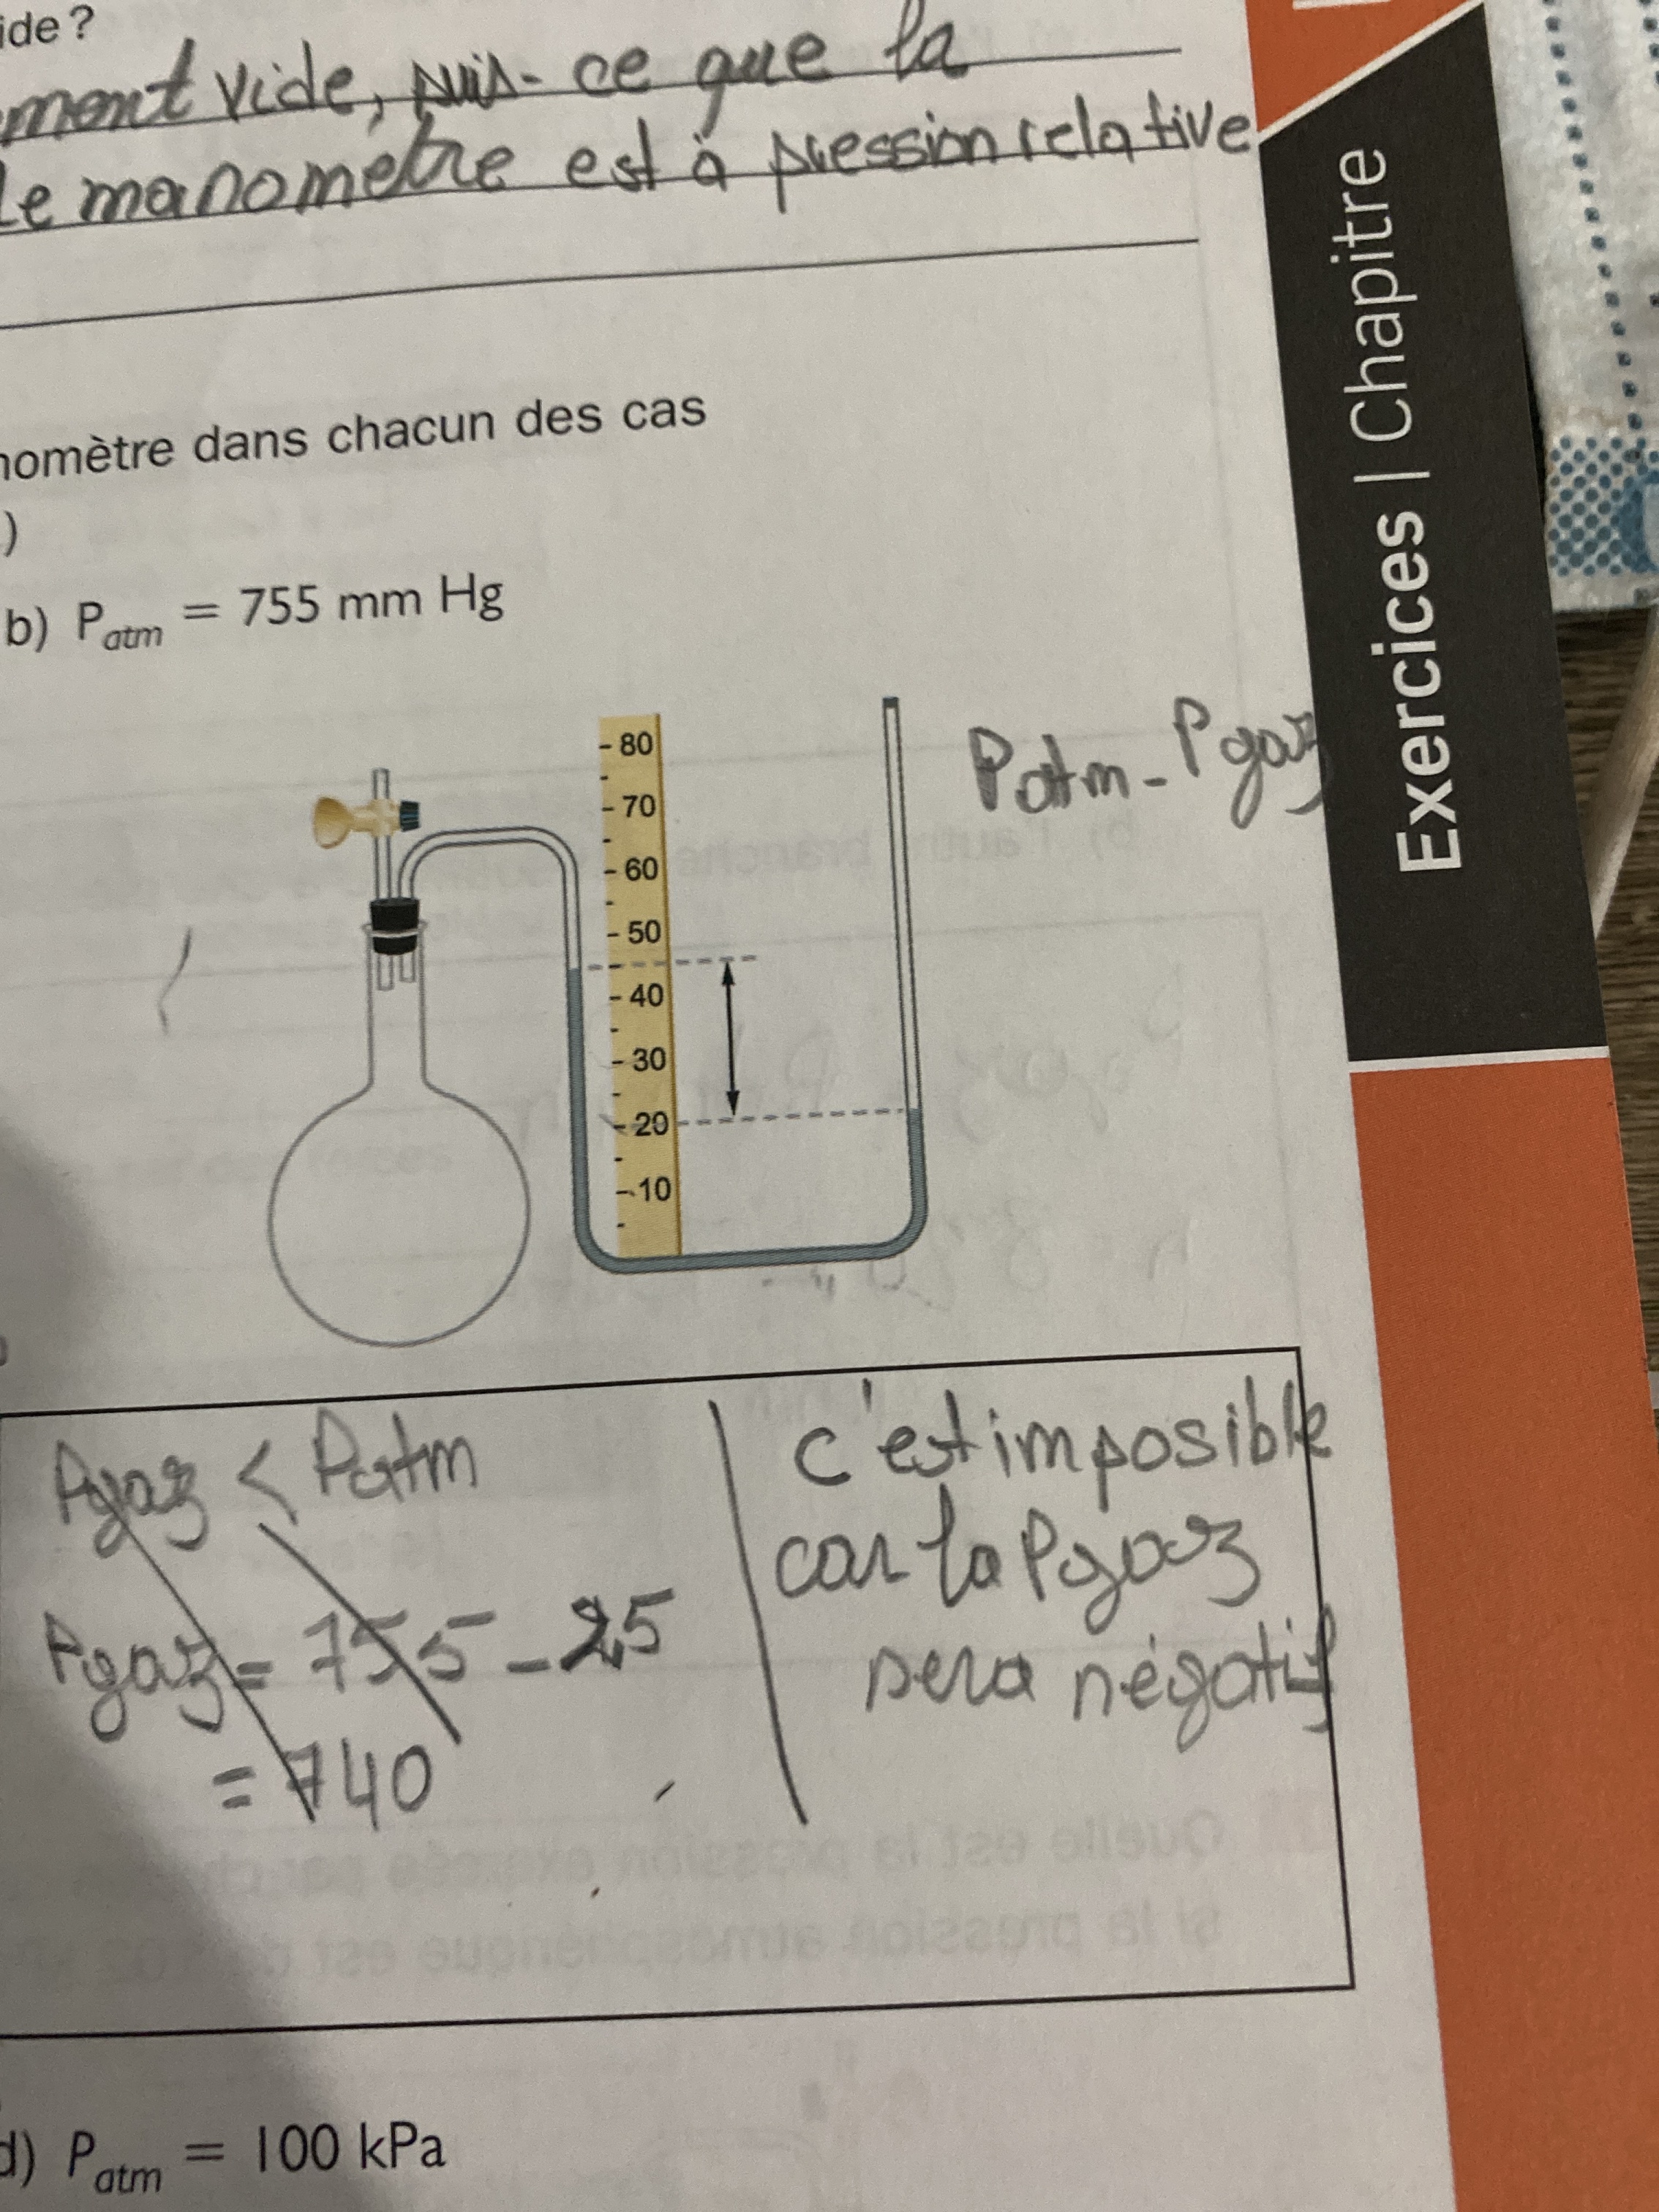 ide ?
ment vide, puis-ce que la
Le manometre est à pression relative
nomètre dans chacun des cas
)
b) Patm = 755 mm Hg
Patm - Pgaz
80
70
60
50
40
30
20
10
Pgaz < Patm
Pgaz = 755 - 25
= 740
c'est imposible
car la Pgaz
sera négatif
d) Patm = 100 kPa
Exercices | Chapitre